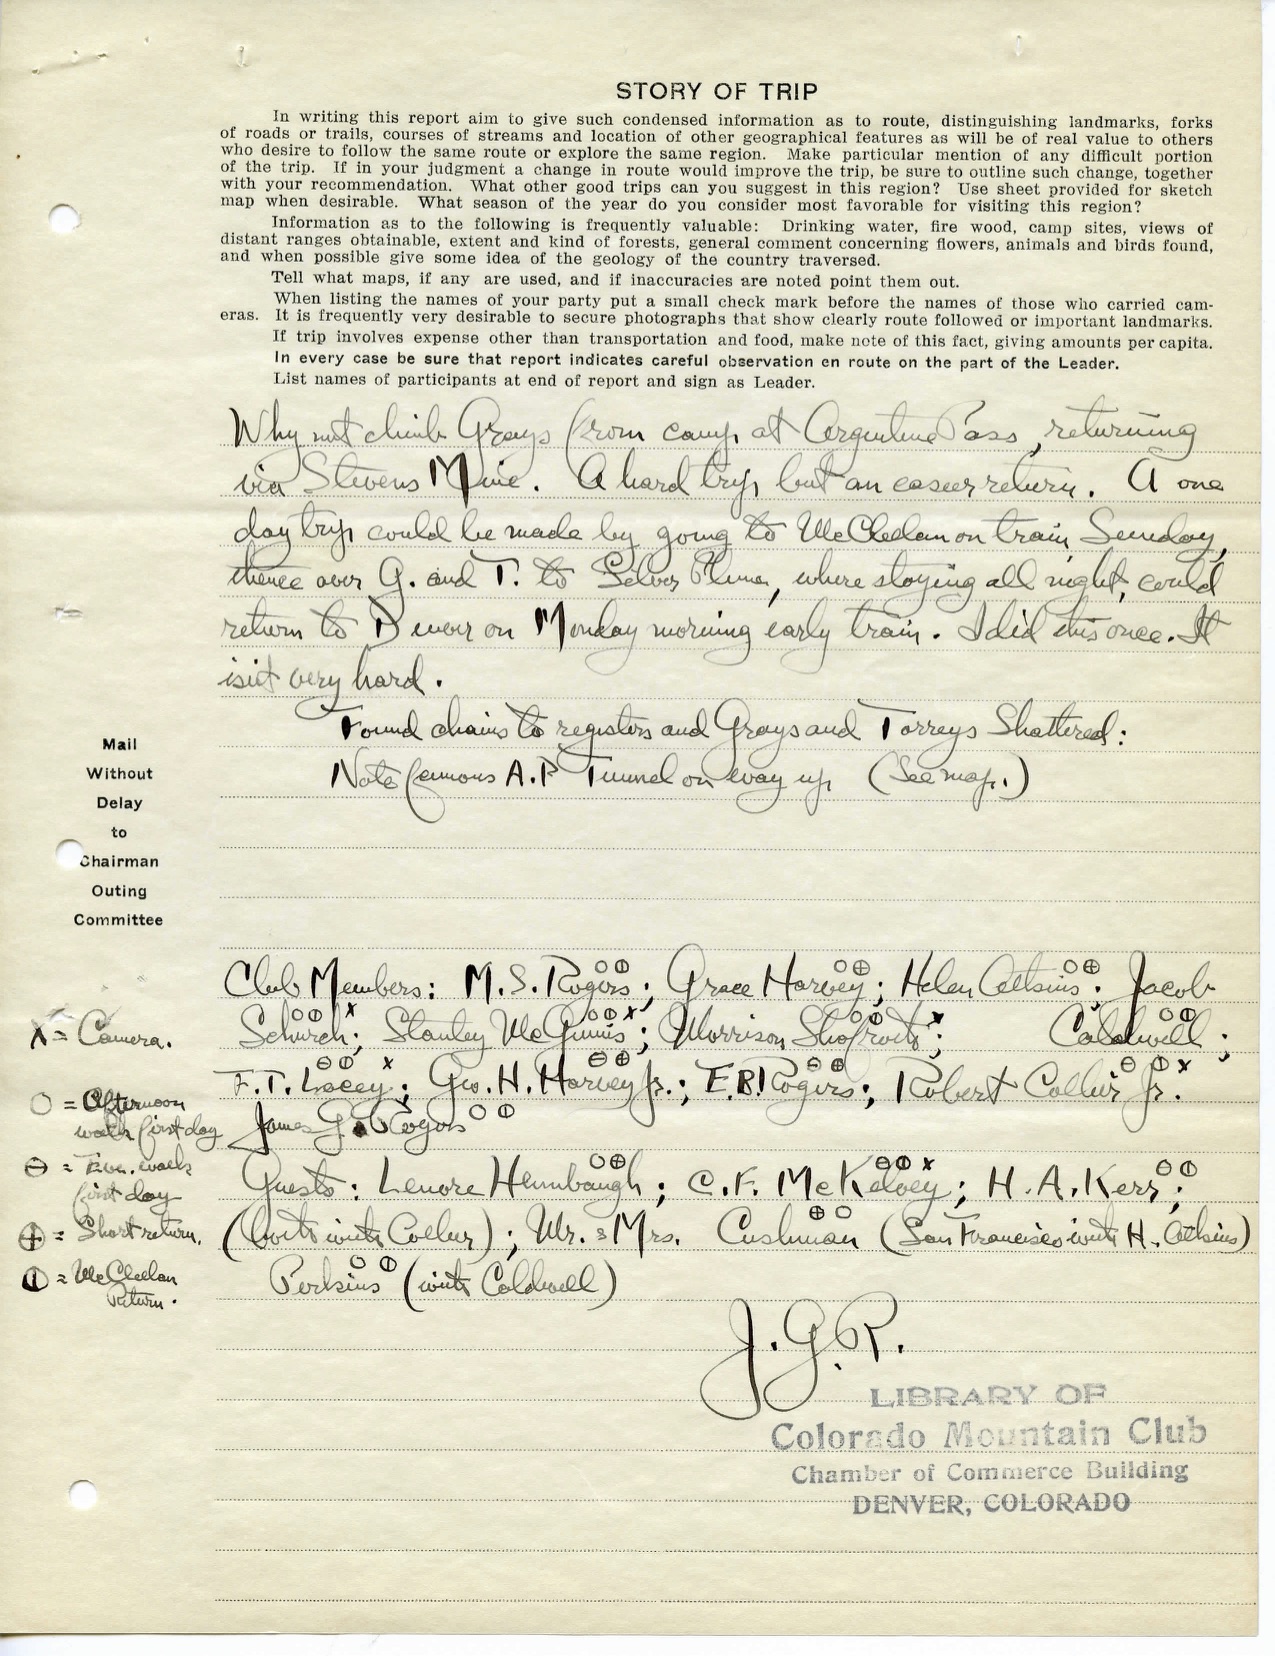 STORY OF TRIP
In writing this report aim to give such condensed information as to route, distinguishing landmarks, forks
of roads or trails, courses of streams and location of other geographical features as will be of real value to others
who desire to follow the same route or explore the same region. Make particular mention of any difficult portion
of the trip. If in your judgment a change in route would improve the trip, be sure to outline such change, together
with your recommendation. What other good trips can you suggest in this region? Use sheet provided for sketch
map when desirable. What season of the year do you consider most favorable for visiting this region?
Information as to the following is frequently valuable: Drinking water, fire wood, camp sites, views of
distant ranges obtainable, extent and kind of forests, general comment concerning flowers, animals and birds found,
and when possible give some idea of the geology of the country traversed.
Tell what maps, if any are used, and if inaccuracies are noted point them out.
When listing the names of your party put a small check mark before the names of those who carried cam-
eras. It is frequently very desirable to secure photographs that show clearly route followed or important landmarks.
If trip involves expense other than transportation and food, make note of this fact, giving amounts per capita.
In every case be sure that report indicates careful observation en route on the part of the Leader.
List names of participants at end of report and sign as Leader.
Why not climb Grays from camp at Argentine Pass, returning
via Stevens Mine. A hard trip but an easier return. A one
day trip could be made by going to McClellan on train Sunday,
thence over G. and T. to Silver Plume, where staying all night, could
return to Denver on Monday morning early train. I did this once. It
isn't very hard.
Found chains to registers and Grays and Torreys Shattered:
Note famous A.P. Tunnel on way up (See map.)
Mail
Without
Delay
to
Chairman
Outing
Committee
Club Members: M.S. Rogers; Grace Harvey; Helen Atkins; Jacob
Schürch; Stanley McGinnis; Morrison Shafroth; Caldwell;
F.T. Lacey; Geo. H. Harvey Jr.; E.B. Rogers; Robert Collier Jr.
James G. Rogers
Guests: Lenore Hennbaugh; C.F. McKelvey; H.A. Kerr;
(both with Collier); Mr. & Mrs. Cushman (San Francisco with H. Atkins)
Perkins (with Caldwell)
X = Camera.
○ = Afternoon
walk first day
⊖ = Eve. walk
first day
⊕ = Short return.
⦶ = McClellan
Return.
J.G.R.
LIBRARY OF
Colorado Mountain Club
Chamber of Commerce Building
DENVER, COLORADO